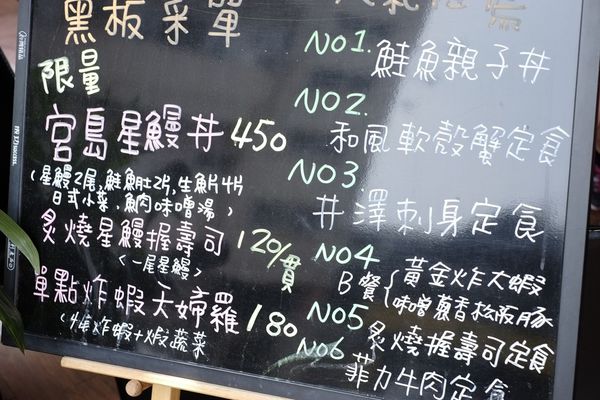 黑板菜單
限量
宮島星鰻丼 450
(星鰻2尾,鮭魚肚2片,生魚片4片
日式小菜,魚肉味噌湯)
炙燒星鰻握壽司 120/貫
<一尾星鰻>
單點炸蝦天婦羅 180
炸蝦+蔬菜
NO1. 鮭魚親子丼
NO2. 和風軟殼蟹定食
NO3 井澤刺身定食
NO4 B餐{黃金炸大蝦
味噌蔥香松阪豚
NO5 炙燒握壽司定食
NO6 菲力牛肉定食